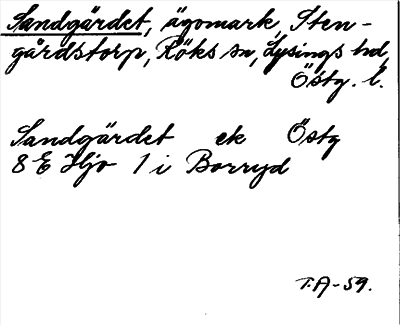 Sandgärdet, ägomark, Sten-
gårdstorp, Röks sn, Lysings hd,
Östg. l.
Sandgärdet ek Östg
8 E Hjo 1 i Borryd
T.A-59.